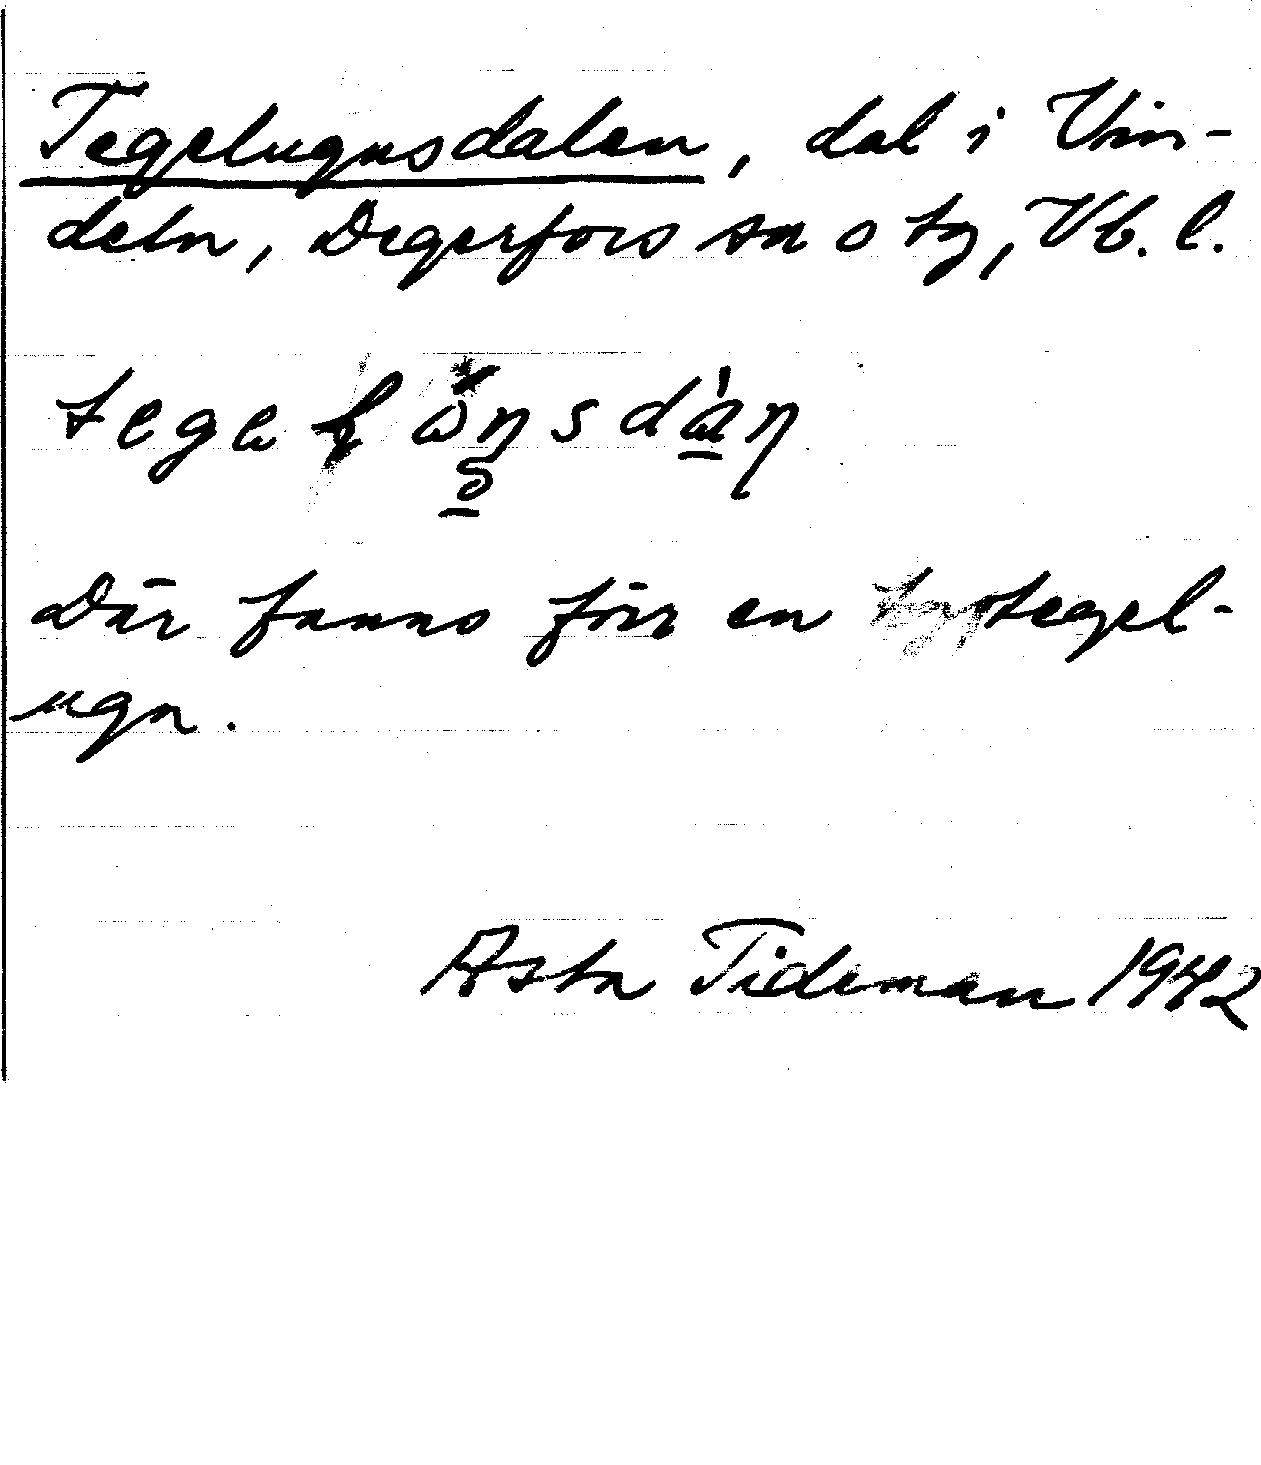 Tegelugnsdalen, dal i Vin-
deln, Degerfors sn o tg, Vb. l.
Där fanns förr en tegel-
ugn.
Asta Tideman 1942